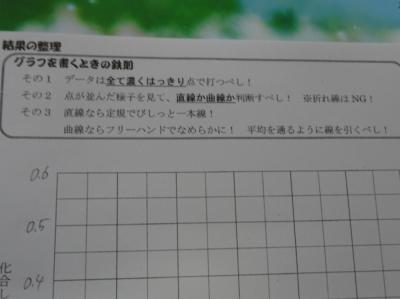 結果の整理
グラフを書くときの鉄則
その1 データは全て濃くはっきり点で打つべし！
その2 点が並んだ様子を見て、直線か曲線か判断すべし！ ※折れ線はNG！
その3 直線なら定規でびしっと一本線！
曲線ならフリーハンドでなめらかに！ 平均を通るように線を引くべし！
0.6
0.5
0.4
化合し